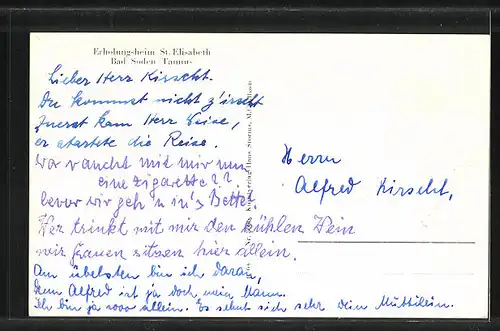 Erholungsheim St. Elisabeth
Bad Soden Taunus
Lieber Herr Kirscht.
Du kommst nicht z'recht
Zuerst kam Herr Weise,
er startete die Reise.
Wer raucht mit mir nun
eine Zigarette??
bevor wir geh'n in's Bette?
Wer trinkt mit mir den kühlen Wein
wir Frauen sitzen hier allein.
Am übelsten bin ich daran,
denn Alfred ist ja doch mein Mann.
Ich bin ja sooo allein. Es sehnt sich sehr dein Muttilein.
Herrn
Alfred Kirscht,